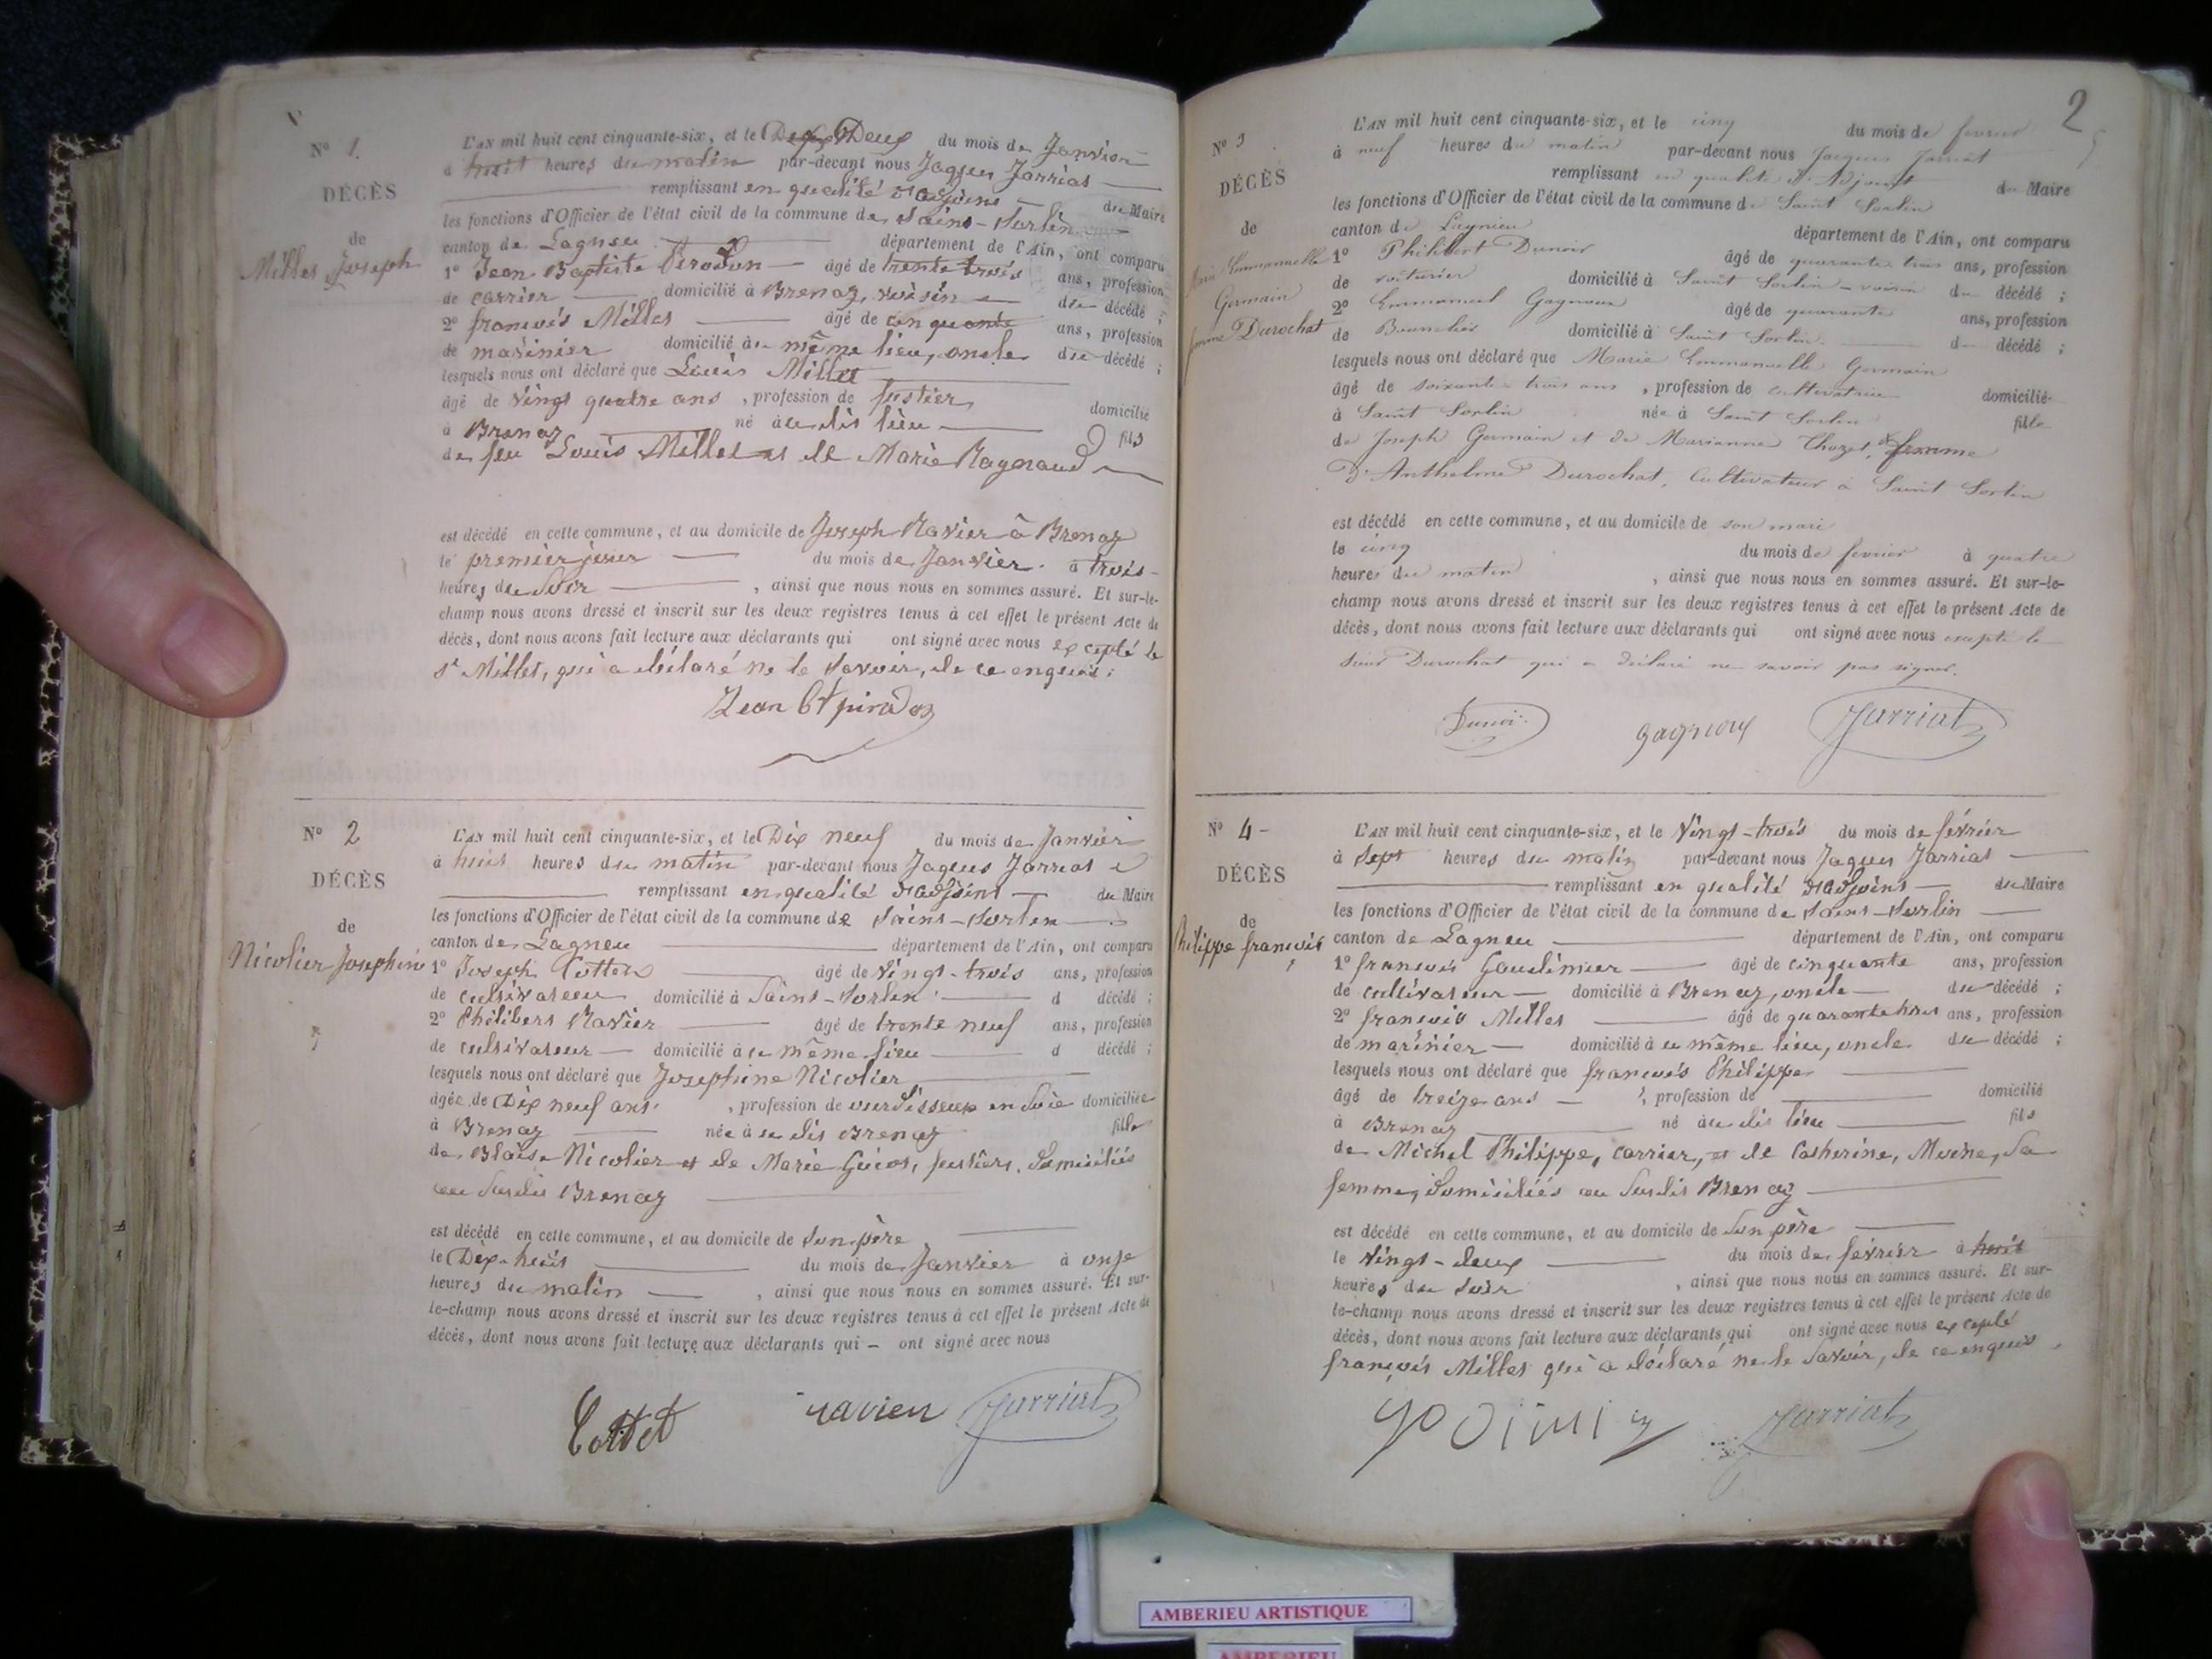 N° 1.
DÉCÈS
de
Millet Joseph
L'AN mil huit cent cinquante-six, et le Deux du mois de Janvier
à huit heures du matin par-devant nous Jaques Jarriat
remplissant en qualité d'adjoint du Maire
les fonctions d'Officier de l'état civil de la commune de Saint-Sorlin
canton de Lagneu département de l'Ain, ont comparu
1° Jean Baptiste Pirodon âgé de trente trois ans, profession
de carrier domicilié à Brenaz, voisin du décédé ;
2° francois Millet âgé de cinquante ans, profession
de marinier domicilié au même lieu, oncle du décédé ;
lesquels nous ont déclaré que Louis Millet
âgé de vingt quatre ans, profession de fustier domicilié
à Brenaz né au dit lieu fils
de feu Louis Millet et de Marie Raynaud
est décédé en cette commune, et au domicile de Joseph Ravier à Brenaz
le premier jour du mois de Janvier à trois
heures du Soir, ainsi que nous nous en sommes assuré. Et sur-le-
champ nous avons dressé et inscrit sur les deux registres tenus à cet effet le présent Acte de
décès, dont nous avons fait lecture aux déclarants qui ont signé avec nous excepté le
sr Millet, qui a déclaré ne le savoir, de ce enquis ;
Jean Bt pirodon
N° 2
DÉCÈS
de
Nicolier Josephine
L'AN mil huit cent cinquante-six, et le Dix neuf du mois de Janvier
à huit heures du matin par-devant nous Jaques Jarriat
remplissant en qualité d'adjoint du Maire
les fonctions d'Officier de l'état civil de la commune de Saint-Sorlin
canton de Lagneu département de l'Ain, ont comparu
1° Joseph Cottet âgé de vingt-trois ans, profession
de cultivateur domicilié à Saint-Sorlin d décédé ;
2° Philibert Ravier âgé de trente neuf ans, profession
de cultivateur domicilié au même lieu d décédé ;
lesquels nous ont déclaré que Josephine Nicolier
âgée de Dix neuf ans, profession de ourdisseuse en Soie domiciliée
à Brenaz née au dit Brenaz fille
de Blaise Nicolier et de Marie Guicot, fustiers, domiciliés
au susdit Brenaz
est décédé en cette commune, et au domicile de Son père
le Dix-huit du mois de Janvier à onze
heures du matin, ainsi que nous nous en sommes assuré. Et sur-
le-champ nous avons dressé et inscrit sur les deux registres tenus à cet effet le présent Acte de
décès, dont nous avons fait lecture aux déclarants qui - ont signé avec nous
Cottet ravier Jarriat
2
N° 3
DÉCÈS
de
Marie Emmanuelle
Germain
femme Durochat
L'AN mil huit cent cinquante-six, et le cinq du mois de fevrier
à neuf heures du matin par-devant nous Jacques Jarriat
remplissant en qualité d'Adjoint du Maire
les fonctions d'Officier de l'état civil de la commune de Saint Sorlin
canton de Lagnieu département de l'Ain, ont comparu
1° Philibert Dunoir âgé de quarante trois ans, profession
de voiturier domicilié à Saint Sorlin - voisin du décédé ;
2° Emmanuel Gagnoux âgé de quarante ans, profession
de domicilié à Saint Sorlin d décédé ;
lesquels nous ont déclaré que Marie Emmanuelle Germain
âgé de soixante trois ans, profession de cultivatrice domicilié
à Saint Sorlin née à Saint Sorlin fille
de Joseph Germain et de Marianne Chozet, femme
d'Anthelme Durochat, Cultivateur à Saint Sorlin
est décédé en cette commune, et au domicile de son mari
le cinq du mois de fevrier à quatre
heures du matin, ainsi que nous nous en sommes assuré. Et sur-le-
champ nous avons dressé et inscrit sur les deux registres tenus à cet effet le présent Acte de
décès, dont nous avons fait lecture aux déclarants qui ont signé avec nous excepté le
sieur Durochat qui a déclaré ne savoir pas signer.
Dunoir gagnoux Jarriat
N° 4
DÉCÈS
de
Philippe françois
L'AN mil huit cent cinquante-six, et le vingt-trois du mois de février
à Sept heures du matin par-devant nous Jaques Jarriat
remplissant en qualité d'adjoint du Maire
les fonctions d'Officier de l'état civil de la commune de Saint-Sorlin
canton de Lagneu département de l'Ain, ont comparu
1° francois âgé de cinquante ans, profession
de cultivateur domicilié à Brenaz, oncle du décédé ;
2° francois Millet âgé de quarante huit ans, profession
de marinier domicilié au même lieu, oncle du décédé ;
lesquels nous ont déclaré que francois Philippe
âgé de treize ans, profession de domicilié
à Brenaz né au dit lieu fils
de Michel Philippe, carrier, et de Catherine, Moine, Sa
femme, domiciliés au susdit Brenaz
est décédé en cette commune, et au domicile de Son père
le vingt-deux du mois de février à huit
heures du Soir, ainsi que nous nous en sommes assuré. Et sur-
le-champ nous avons dressé et inscrit sur les deux registres tenus à cet effet le présent Acte de
décès, dont nous avons fait lecture aux déclarants qui ont signé avec nous excepté
françois Millet qui a déclaré ne le savoir, de ce enquis
Jarriat
AMBERIEU ARTISTIQUE
AMBERIEU